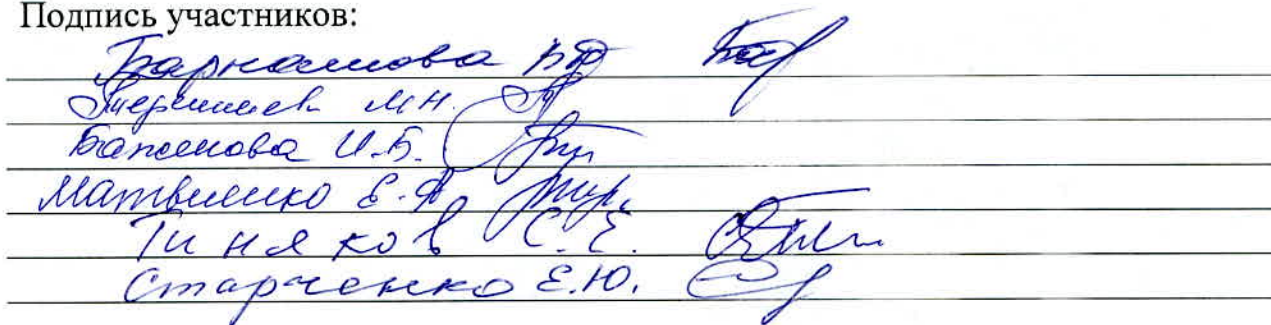 Подпись участников:
Барнашова
М.Н.
Баженова И.Б.
Матвиенко Е.А.
Тиняков С.Е.
Старченко Е.Ю.